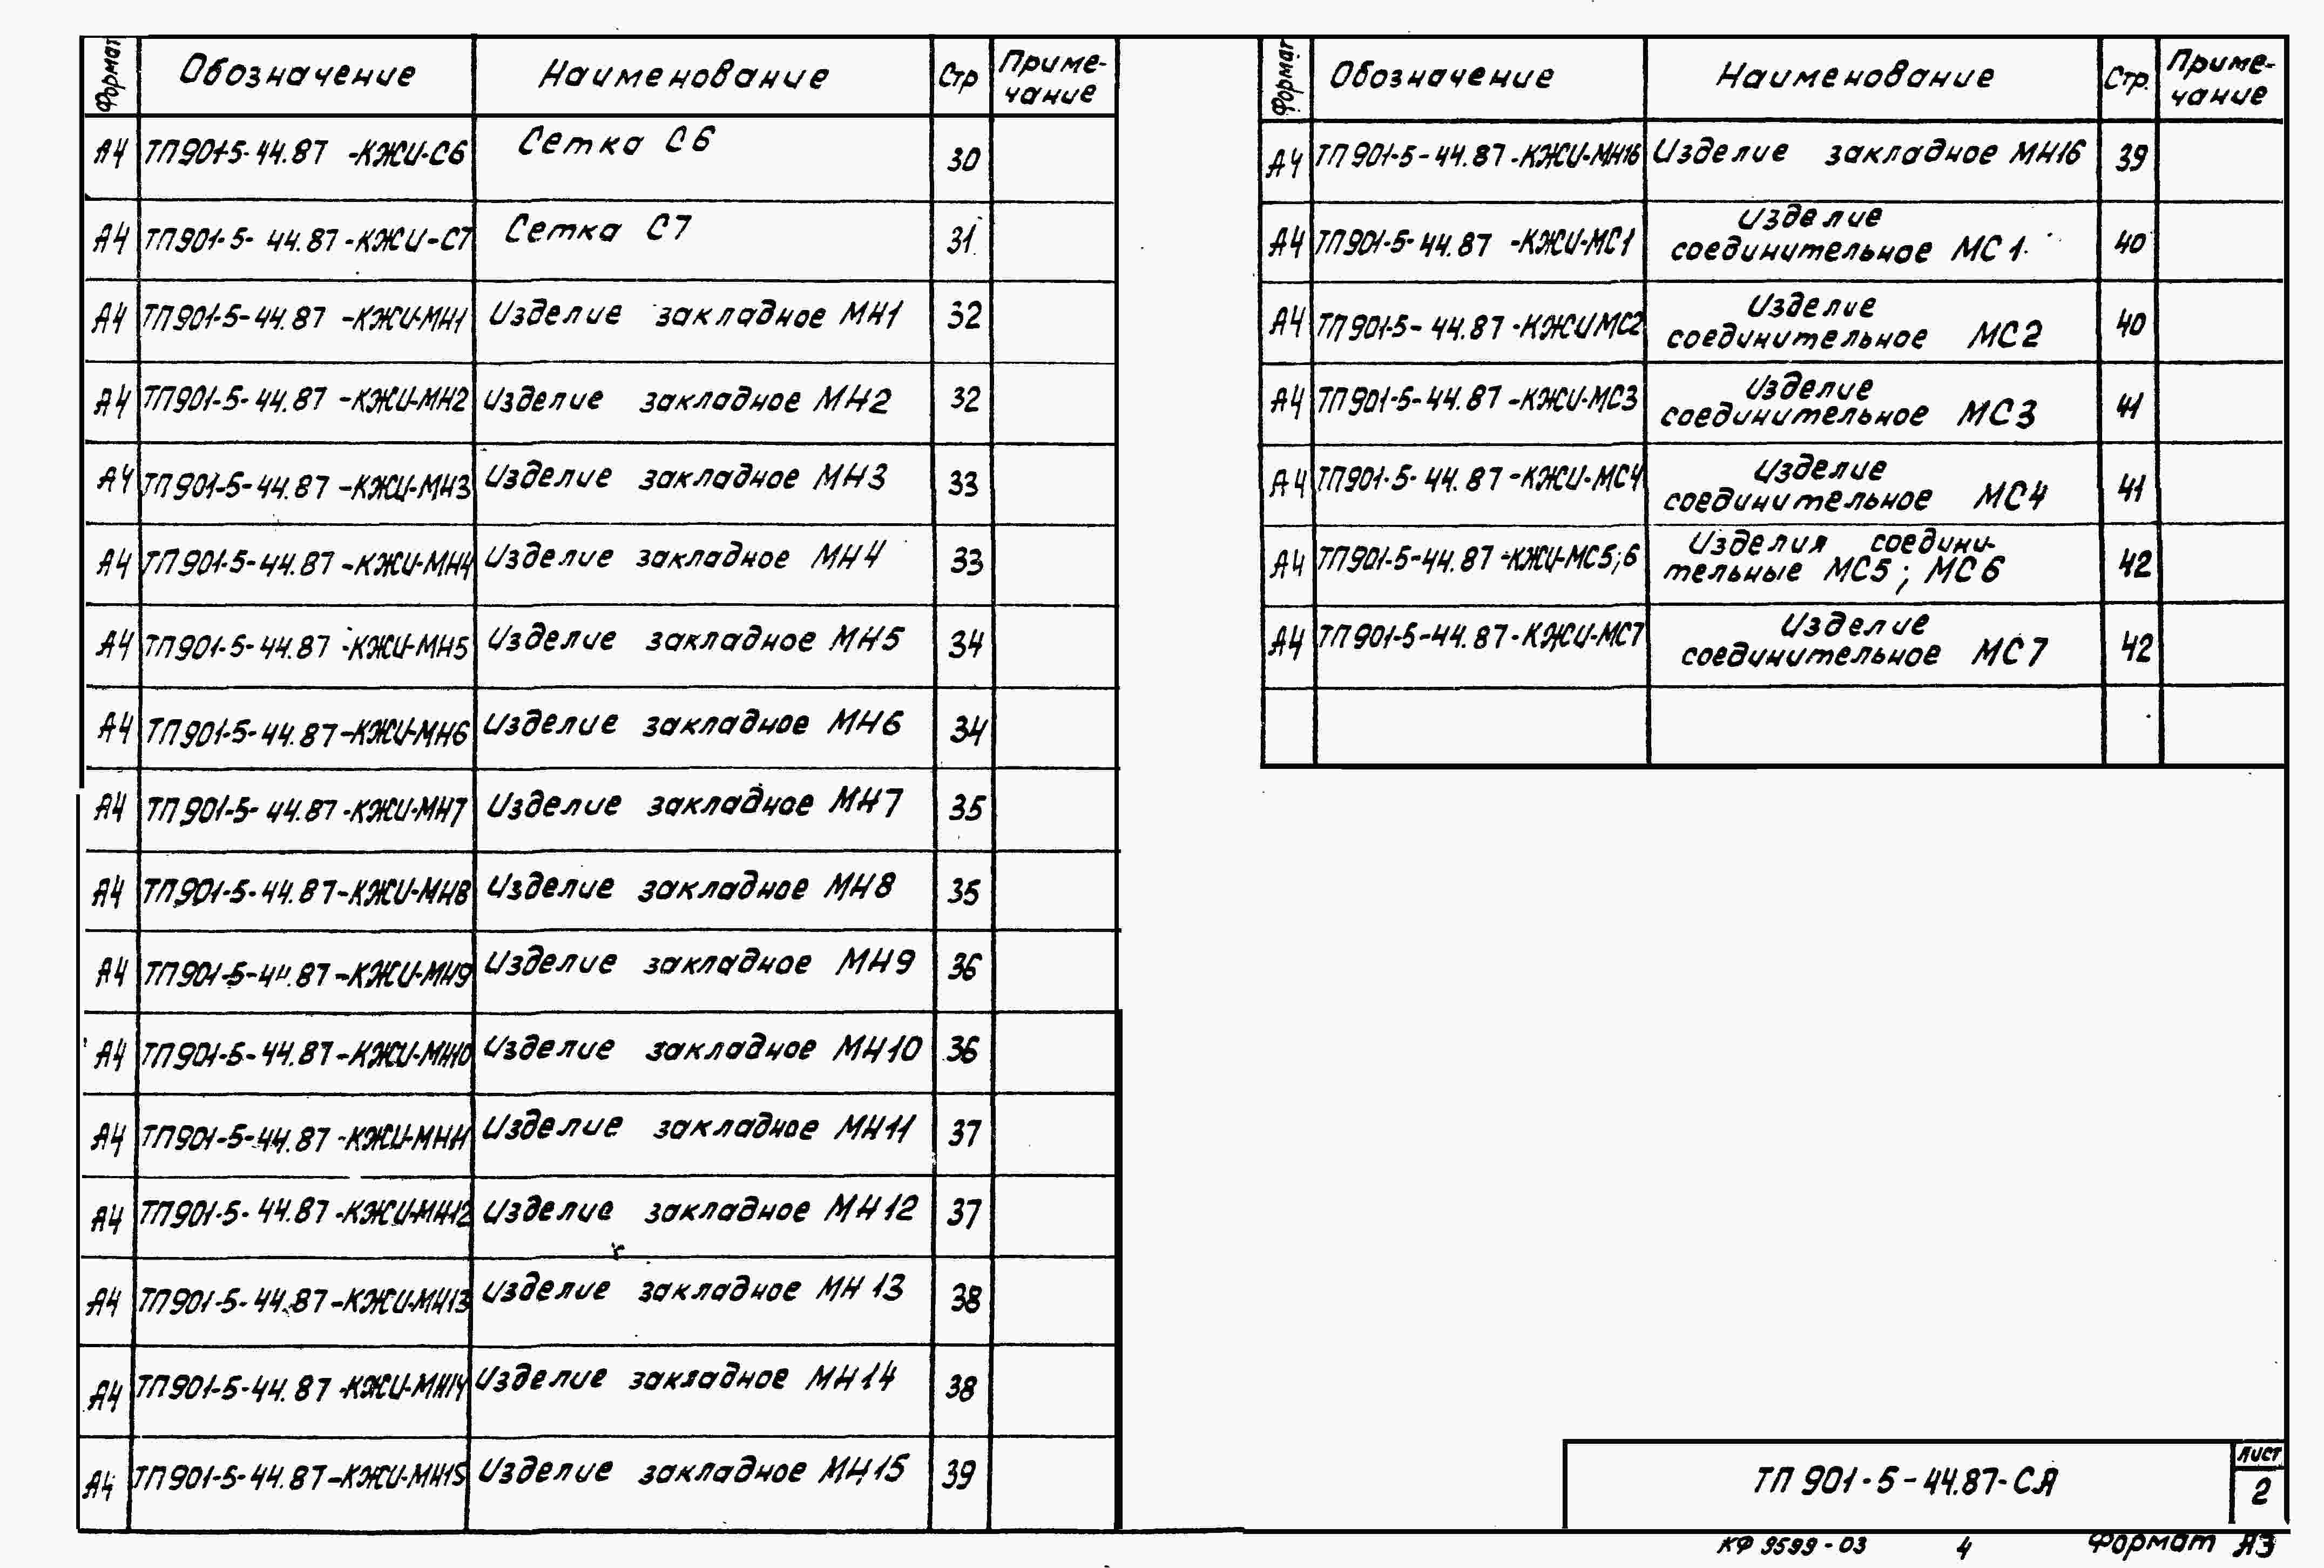 Формат Обозначение Наименование Стр Приме-
чание
А4 ТП901-5-44.87-КЖИ-С6 Сетка С6 30
А4 ТП901-5-44.87-КЖИ-С7 Сетка С7 31
А4 ТП901-5-44.87-КЖИ-МН1 Изделие закладное МН1 32
А4 ТП901-5-44.87-КЖИ-МН2 Изделие закладное МН2 32
А4 ТП901-5-44.87-КЖИ-МН3 Изделие закладное МН3 33
А4 ТП901-5-44.87-КЖИ-МН4 Изделие закладное МН4 33
А4 ТП901-5-44.87-КЖИ-МН5 Изделие закладное МН5 34
А4 ТП901-5-44.87-КЖИ-МН6 Изделие закладное МН6 34
А4 ТП901-5-44.87-КЖИ-МН7 Изделие закладное МН7 35
А4 ТП901-5-44.87-КЖИ-МН8 Изделие закладное МН8 35
А4 ТП901-5-44.87-КЖИ-МН9 Изделие закладное МН9 36
А4 ТП901-5-44.87-КЖИ-МН10 Изделие закладное МН10 36
А4 ТП901-5-44.87-КЖИ-МН11 Изделие закладное МН11 37
А4 ТП901-5-44.87-КЖИ-МН12 Изделие закладное МН12 37
А4 ТП901-5-44.87-КЖИ-МН13 Изделие закладное МН13 38
А4 ТП901-5-44.87-КЖИ-МН14 Изделие закладное МН14 38
А4 ТП901-5-44.87-КЖИ-МН15 Изделие закладное МН15 39
Формат Обозначение Наименование Стр. Приме-
чание
А4 ТП901-5-44.87-КЖИ-МН16 Изделие закладное МН16 39
Изделие
А4 ТП901-5-44.87-КЖИ-МС1 соединительное МС1 40
Изделие
А4 ТП901-5-44.87-КЖИМС2 соединительное МС2 40
Изделие
А4 ТП901-5-44.87-КЖИ-МС3 соединительное МС3 41
Изделие
А4 ТП901-5-44.87-КЖИ-МС4 соединительное МС4 41
Изделия соедини-
А4 ТП901-5-44.87-КЖИ-МС5;6 тельные МС5; МС6 42
Изделие
А4 ТП901-5-44.87-КЖИ-МС7 соединительное МС7 42
ТП 901-5-44.87-СА
Лист
2
КФ 9599-03 4 Формат А3